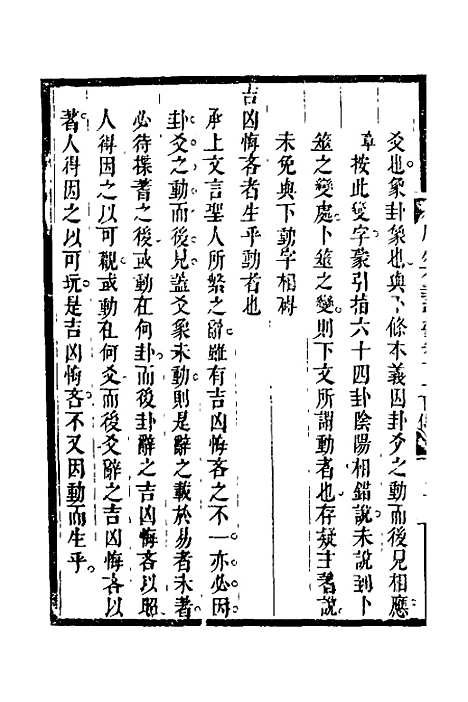 爻也象卦象也與下條本義因卦爻之動而後見相應
按此變字蒙引指六十四卦陰陽相錯說未說到卜
筮之變處卜筮之變則下文所謂動者也存疑主蓍說
未免與下動字相碍
吉凶悔吝者生乎動者也
承上文言聖人所繫之辭雖有吉凶悔吝之不一亦必因
卦爻之動而後見蓋爻象未動則是辭之載於易者未著
必待揲蓍之後或動在何卦而後卦辭之吉凶悔吝以昭
人得因之以可觀或動在何爻而後爻辭之吉凶悔吝以
著人得因之以可玩是吉凶悔吝不又因動而生乎